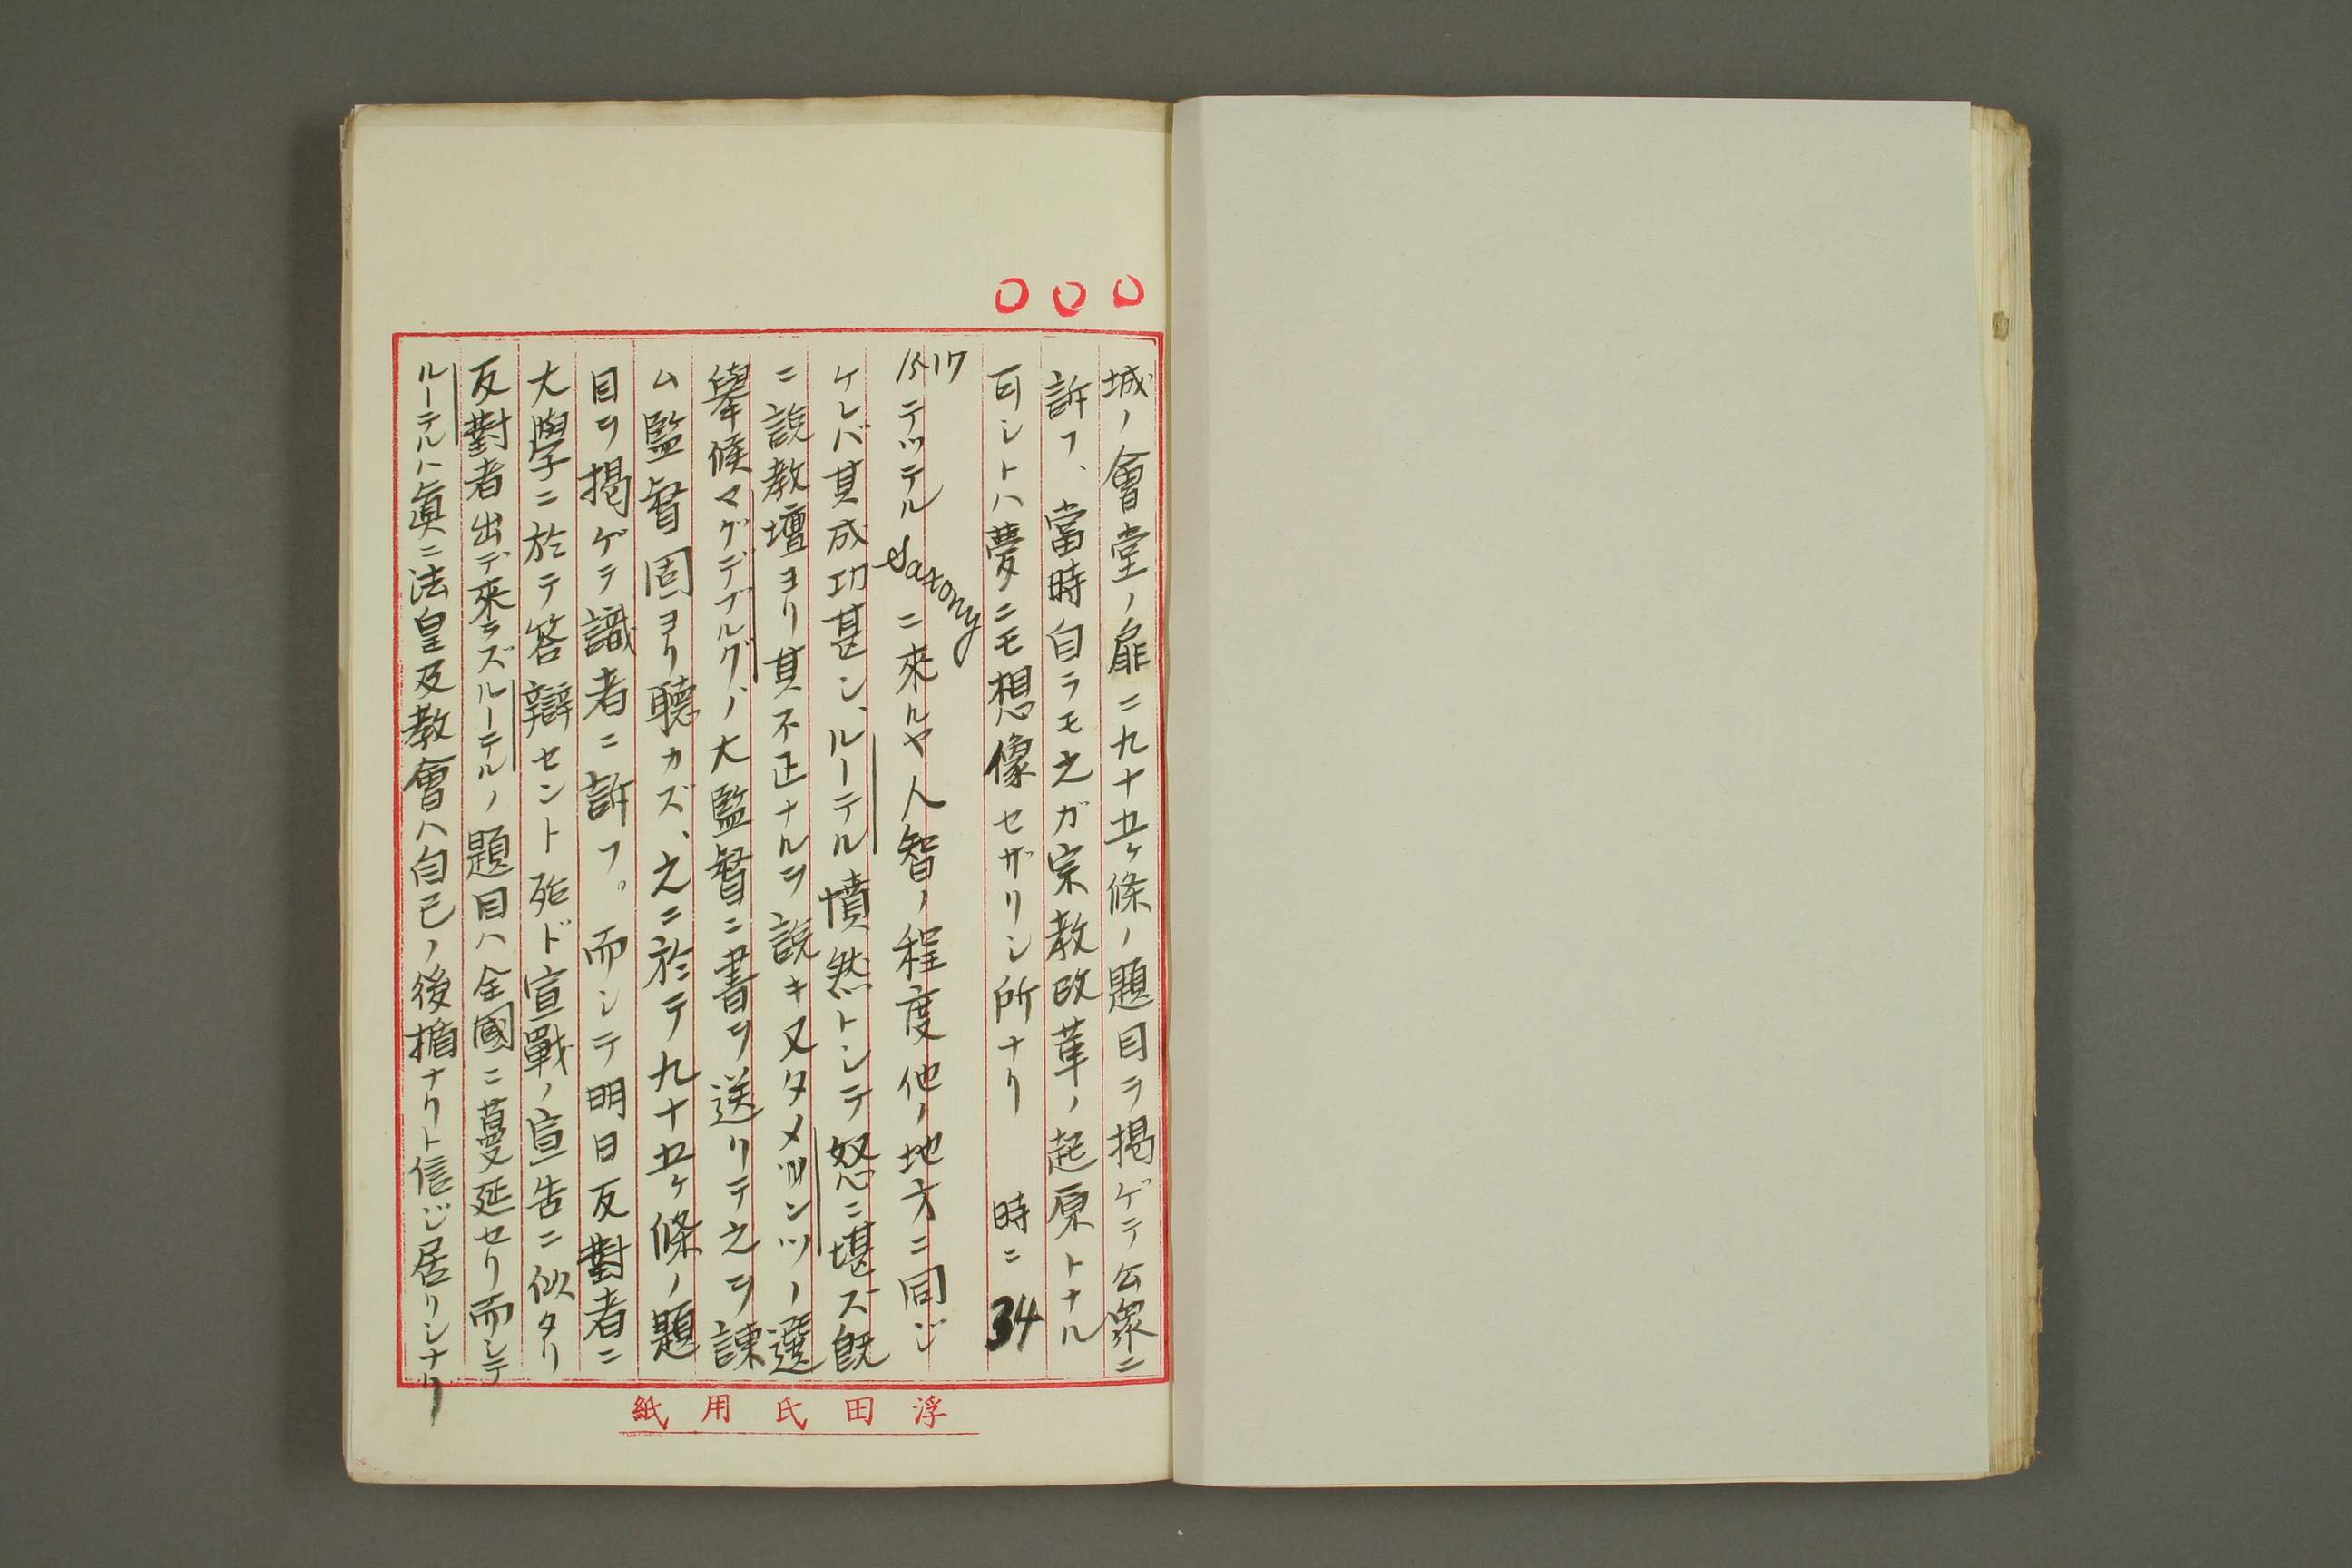 城ノ會堂ノ扉ニ九十五ヶ條ノ題目ヲ掲ゲテ公衆ニ
訴フ、當時自ラモ之ガ宗教改革ノ起原トナル
可シトハ夢ニモ想像セザリシ所ナリ 時ニ 34
1517
テッテル Saxony ニ來ルヤ人智ノ程度他ノ地方ニ同ジ
ケレバ其成功甚シ、ルーテル憤然トシテ怒ニ堪ズ既
ニ說教壇ヨリ其不正ナルヲ說キ又タメンツノ選
擧候マグデブルグノ大監督ニ書ヲ送リテ之ヲ諫
ム監督固ヨリ聽カズ、之ニ於テ九十五ヶ條ノ題
目ヲ掲ゲテ識者ニ訴フ。而シテ明日反對者ニ
大學ニ於テ答辯セント殆ド宣戰ノ宣告ニ似タリ
反對者出デ來ラズルーテルノ題目ハ全國ニ蔓延セリ而シテ
ルーテルハ眞ニ法皇及教會ハ自己ノ後楯ナリト信ジ居リシナリ
浮田氏用紙